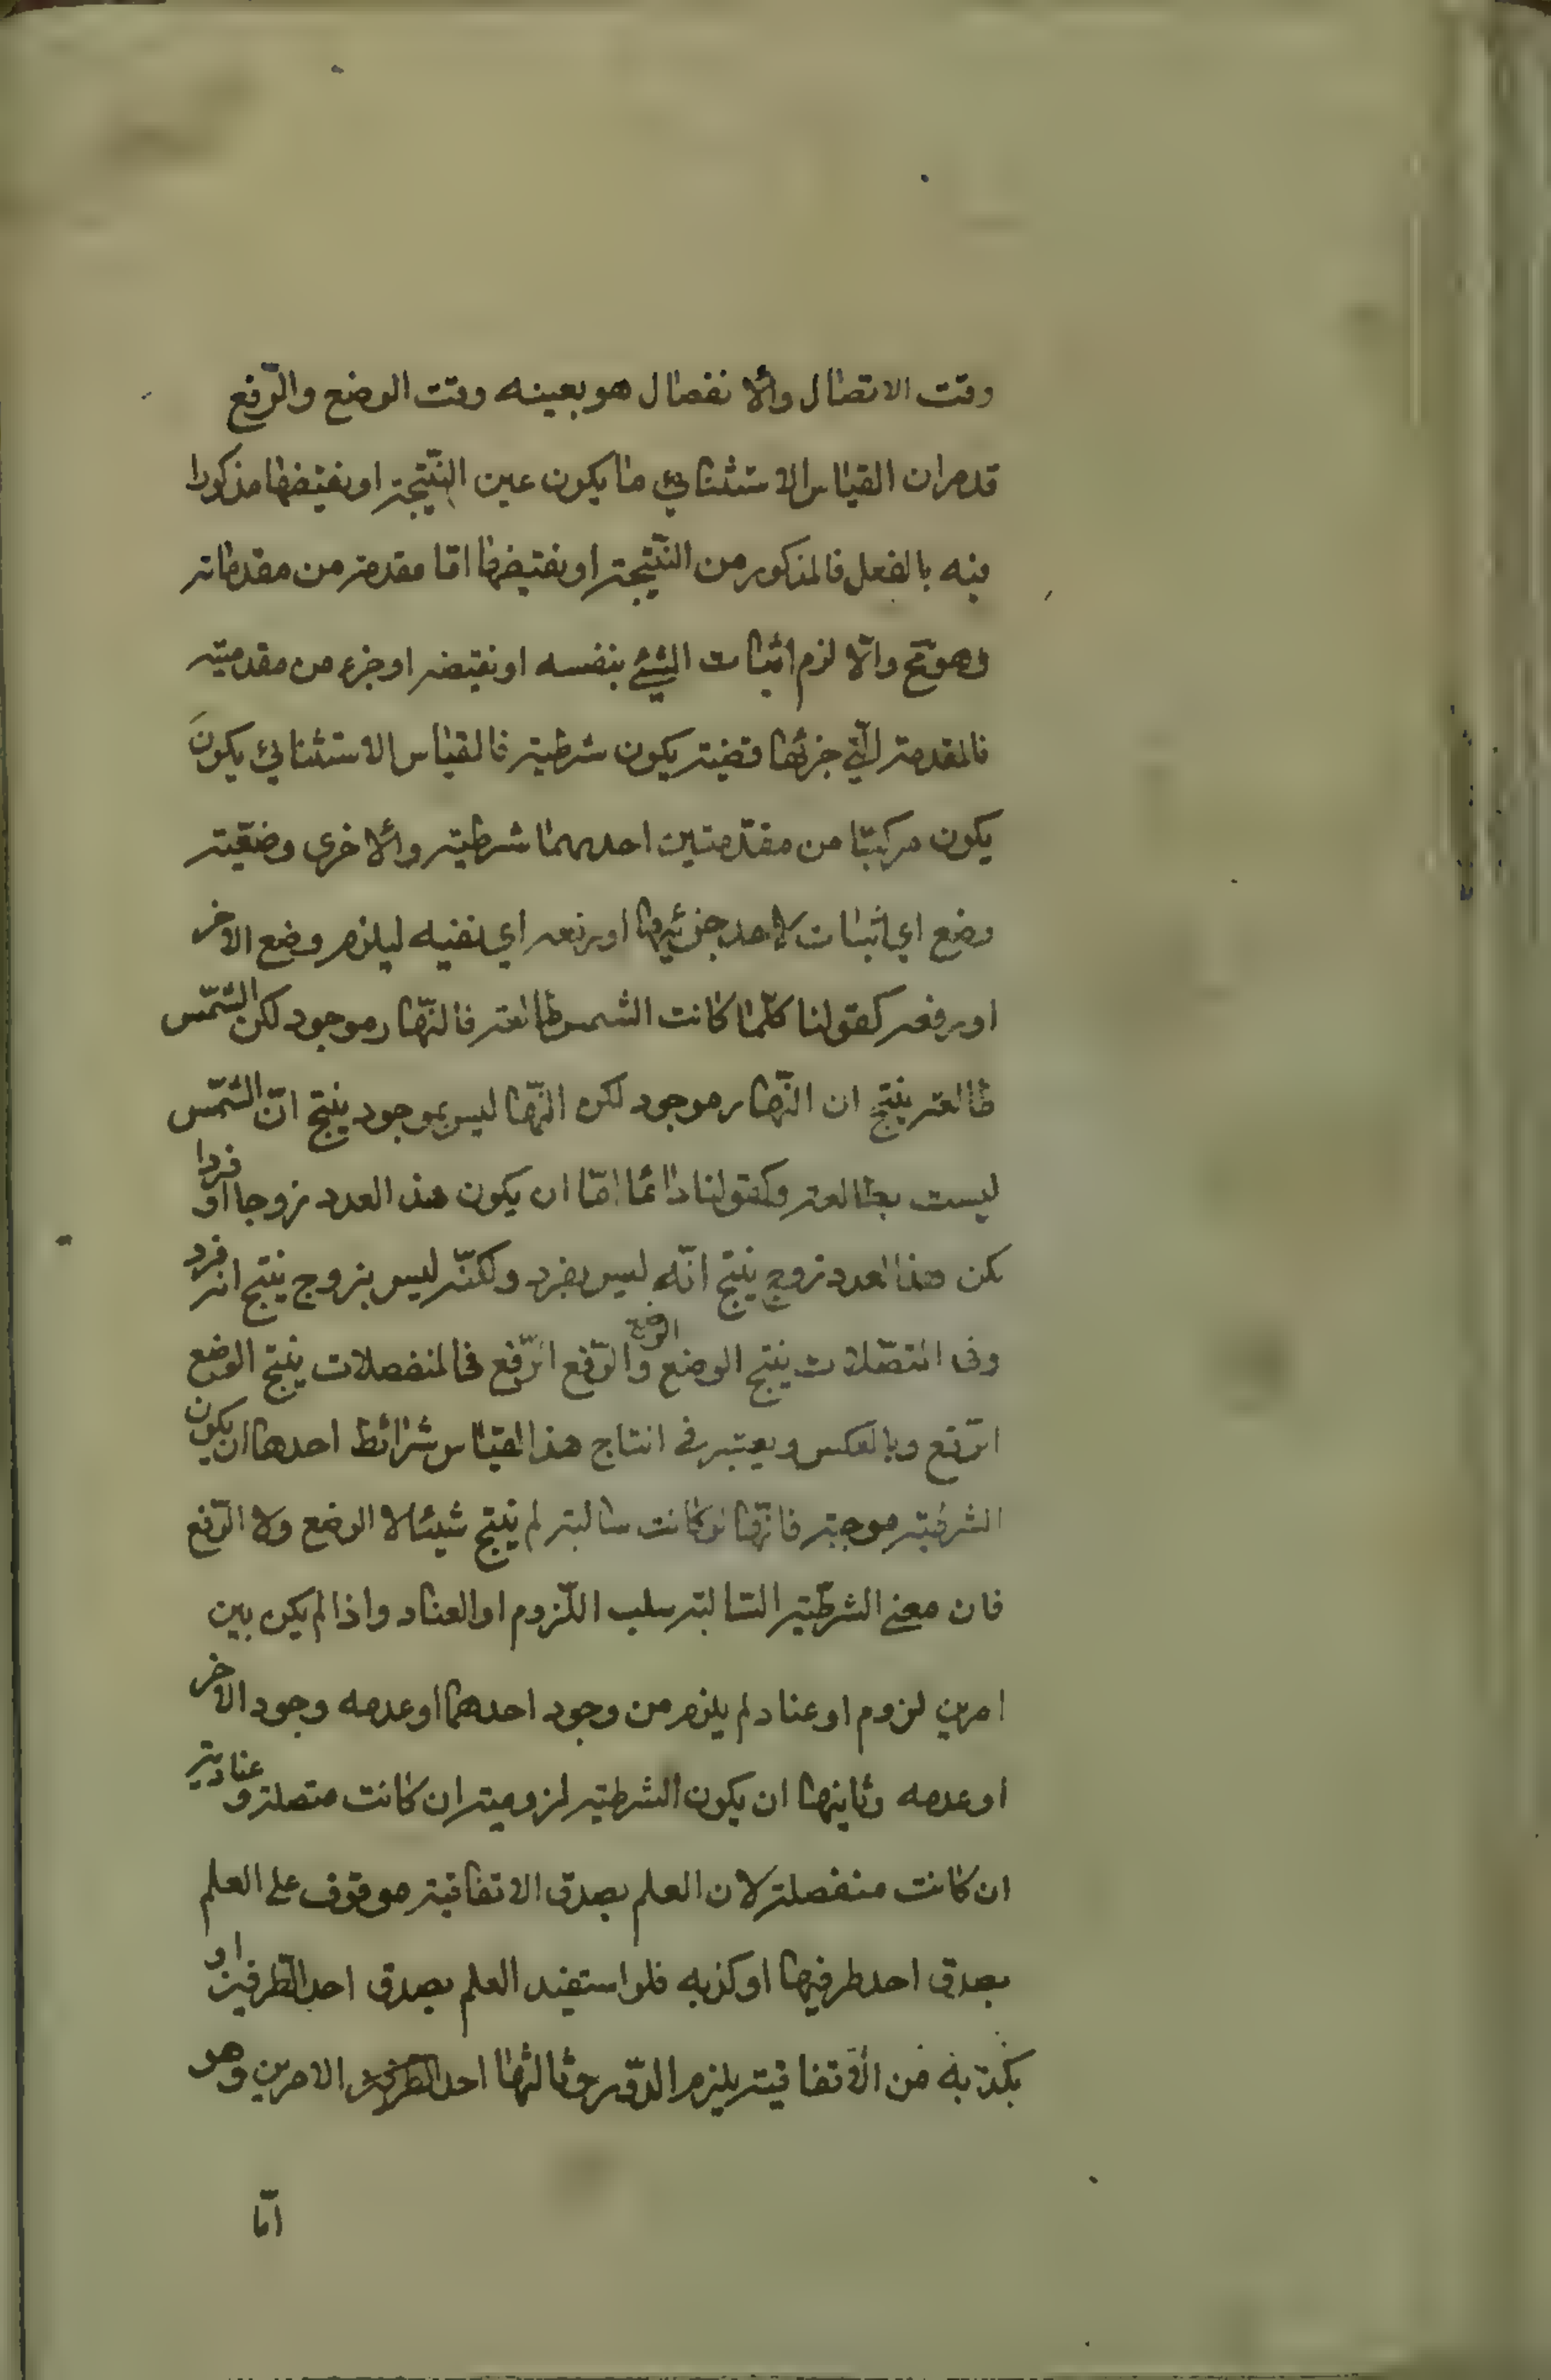 وقت الاتصال والانفصال هو بعينه وقت الوضع والرّفع
قد مر ان القياس الاستثنائي ما يكون عين النّتيجة او نقيضها مذكورا
فيه بالفعل فالمذكور من النّتيجة او نقيضها امّا مقدمة من مقدماته
وهو مح والّا لزم اثبات الشيئ بنفسه او نقيضه او جزء من مقدمته
فالمقدمة الّتي جزئها قضية يكون شرطية فالقياس الاستثنائي يكون
يكون مركبّا من مقدّمتين احديهما شرطية والاخرى وضعيّة
وضع اي اثبات لاحد جزئيها او رفعه اي نفيه ليلزم وضع الاخر
او رفعه كقولنا كلّما كانت الشمس طالعة فالنّهار موجود لكن الشّمس
طالعة ينتج ان النّهار موجود لكن النّها ليس بموجود ينتج انّ الشّمس
ليست بطالعة وكقولنا دائما امّا ان يكون هذ العدد زوجا او فردا
لكن هذا العدد زوج ينتج انّه ليس بفرد ولكنّه ليس بزوج ينتج انه فرد
وفى المتصّلات ينتج الوضع الوضع والرّفع الرّفع فى المنفصلات ينتج الوضع
الرّفع وبالعكس ويعتبر فى انتاج هذا القياس شرائط احدها ان يكون
الشرطية موجبة فانّها لو كانت سالبة لم ينتج شيئا لا الوضع ولا الرّفع
فان معنى الشرطيّة السّالبة سلب اللّزوم او العناد واذا لم يكن بين
امرين لزوم او عناد لم يلزم من وجود احدهما او عدمه وجود الاخر
او عدمه وثانيها ان يكون الشرطيّة لزومية ان كانت متصلة وعنادية
ان كانت منفصلة لان العلم بصدق الاتفاقية موقوف على العلم
بصدق احد طرفيها او كذبه فلو استفيد العلم بصدق احد الطّرفين او
بكذبه من الاتفاقية يلزم الدّور وثالثها احد الامرين وهو
امّا